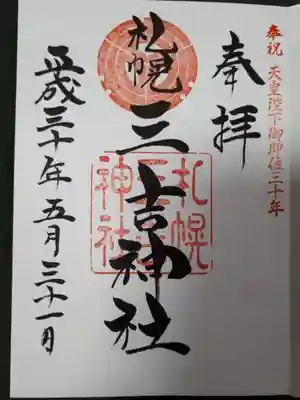 奉祝 天皇陛下御即位三十年
奉拝
札幌
三吉神社
札幌
三吉
神社
平成三十年五月三十一日